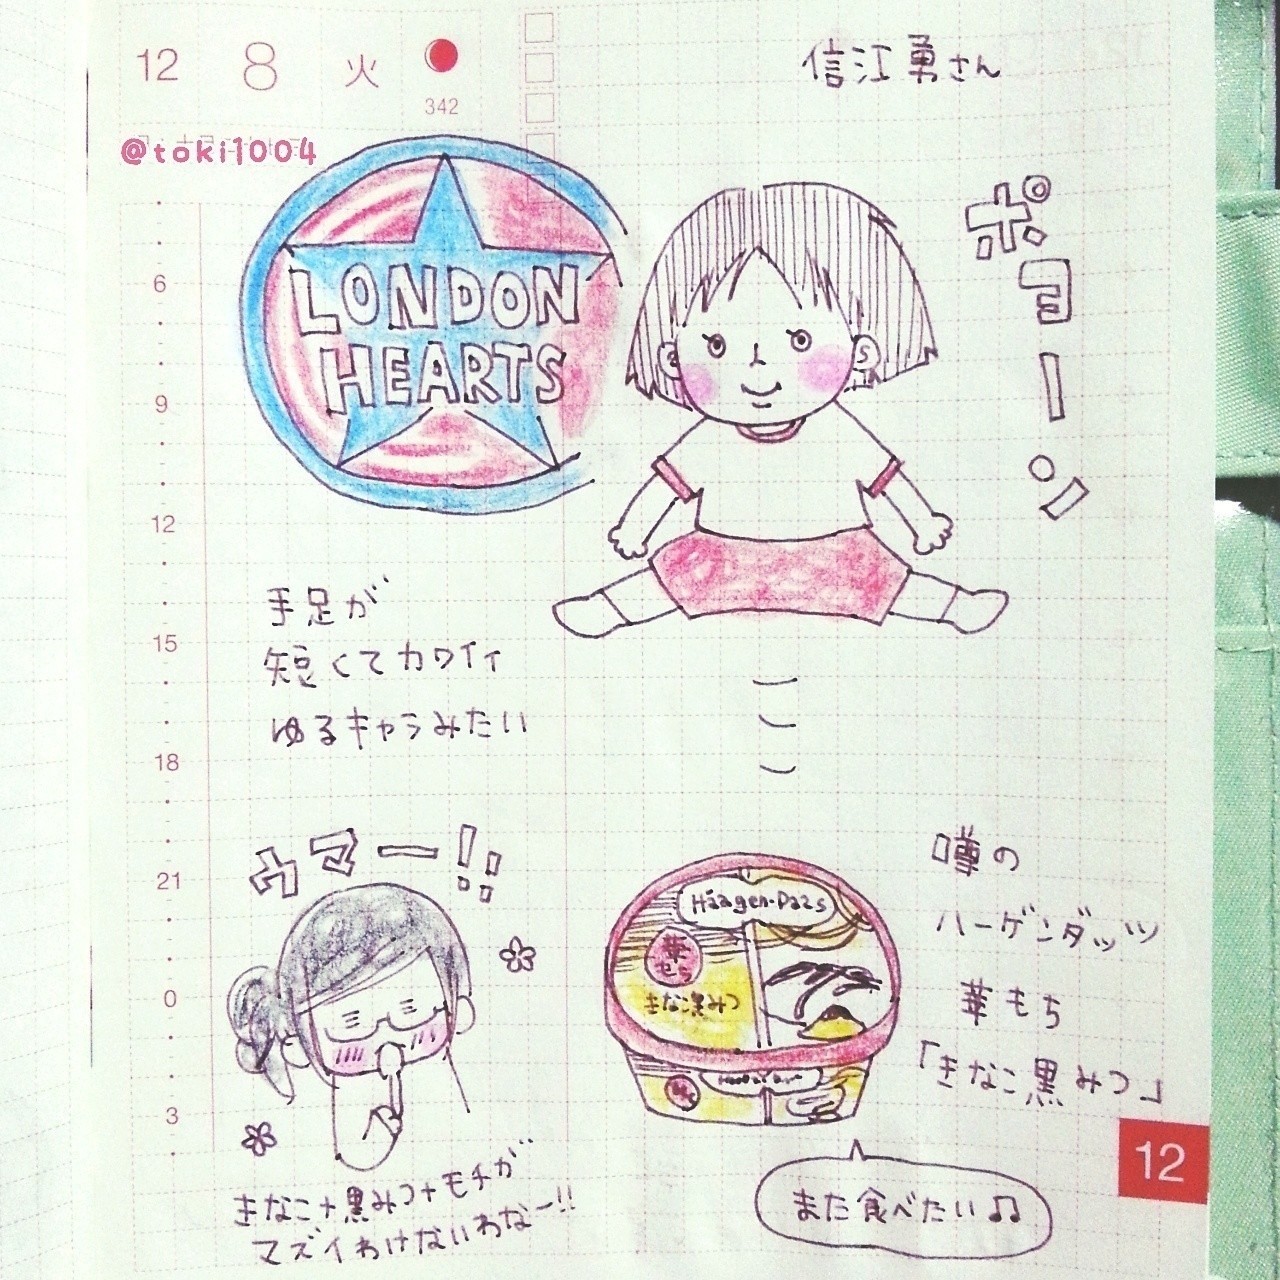 12 8 火
342
信江勇さん
@toki1004
LONDON
HEARTS
ポヨーン
6
9
12
15
18
21
0
3
手足が
短くてカワイイ
ゆるキャラみたい
ウマー!!
Häagen-Dazs
華もち
きなこ黒みつ
噂の
ハーゲンダッツ
華もち
「きなこ黒みつ」
12
きなこ+黒みつ+モチが
マズイわけないわなー!!
また食べたい♫